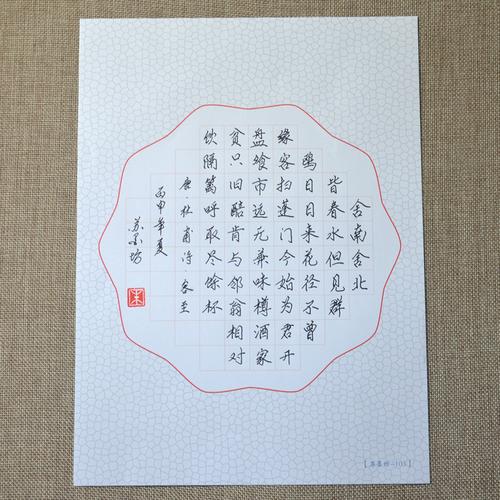 舍南舍北
皆春水但见群
鸥日日来花径不曾
缘客扫蓬门今始为君开
盘飧市远无兼味樽酒家
贫只旧醅肯与邻翁相对
饮隔篱呼取尽馀杯
唐·杜甫诗 客至
丙申年夏
苏墨坊
【苏墨坊-103】